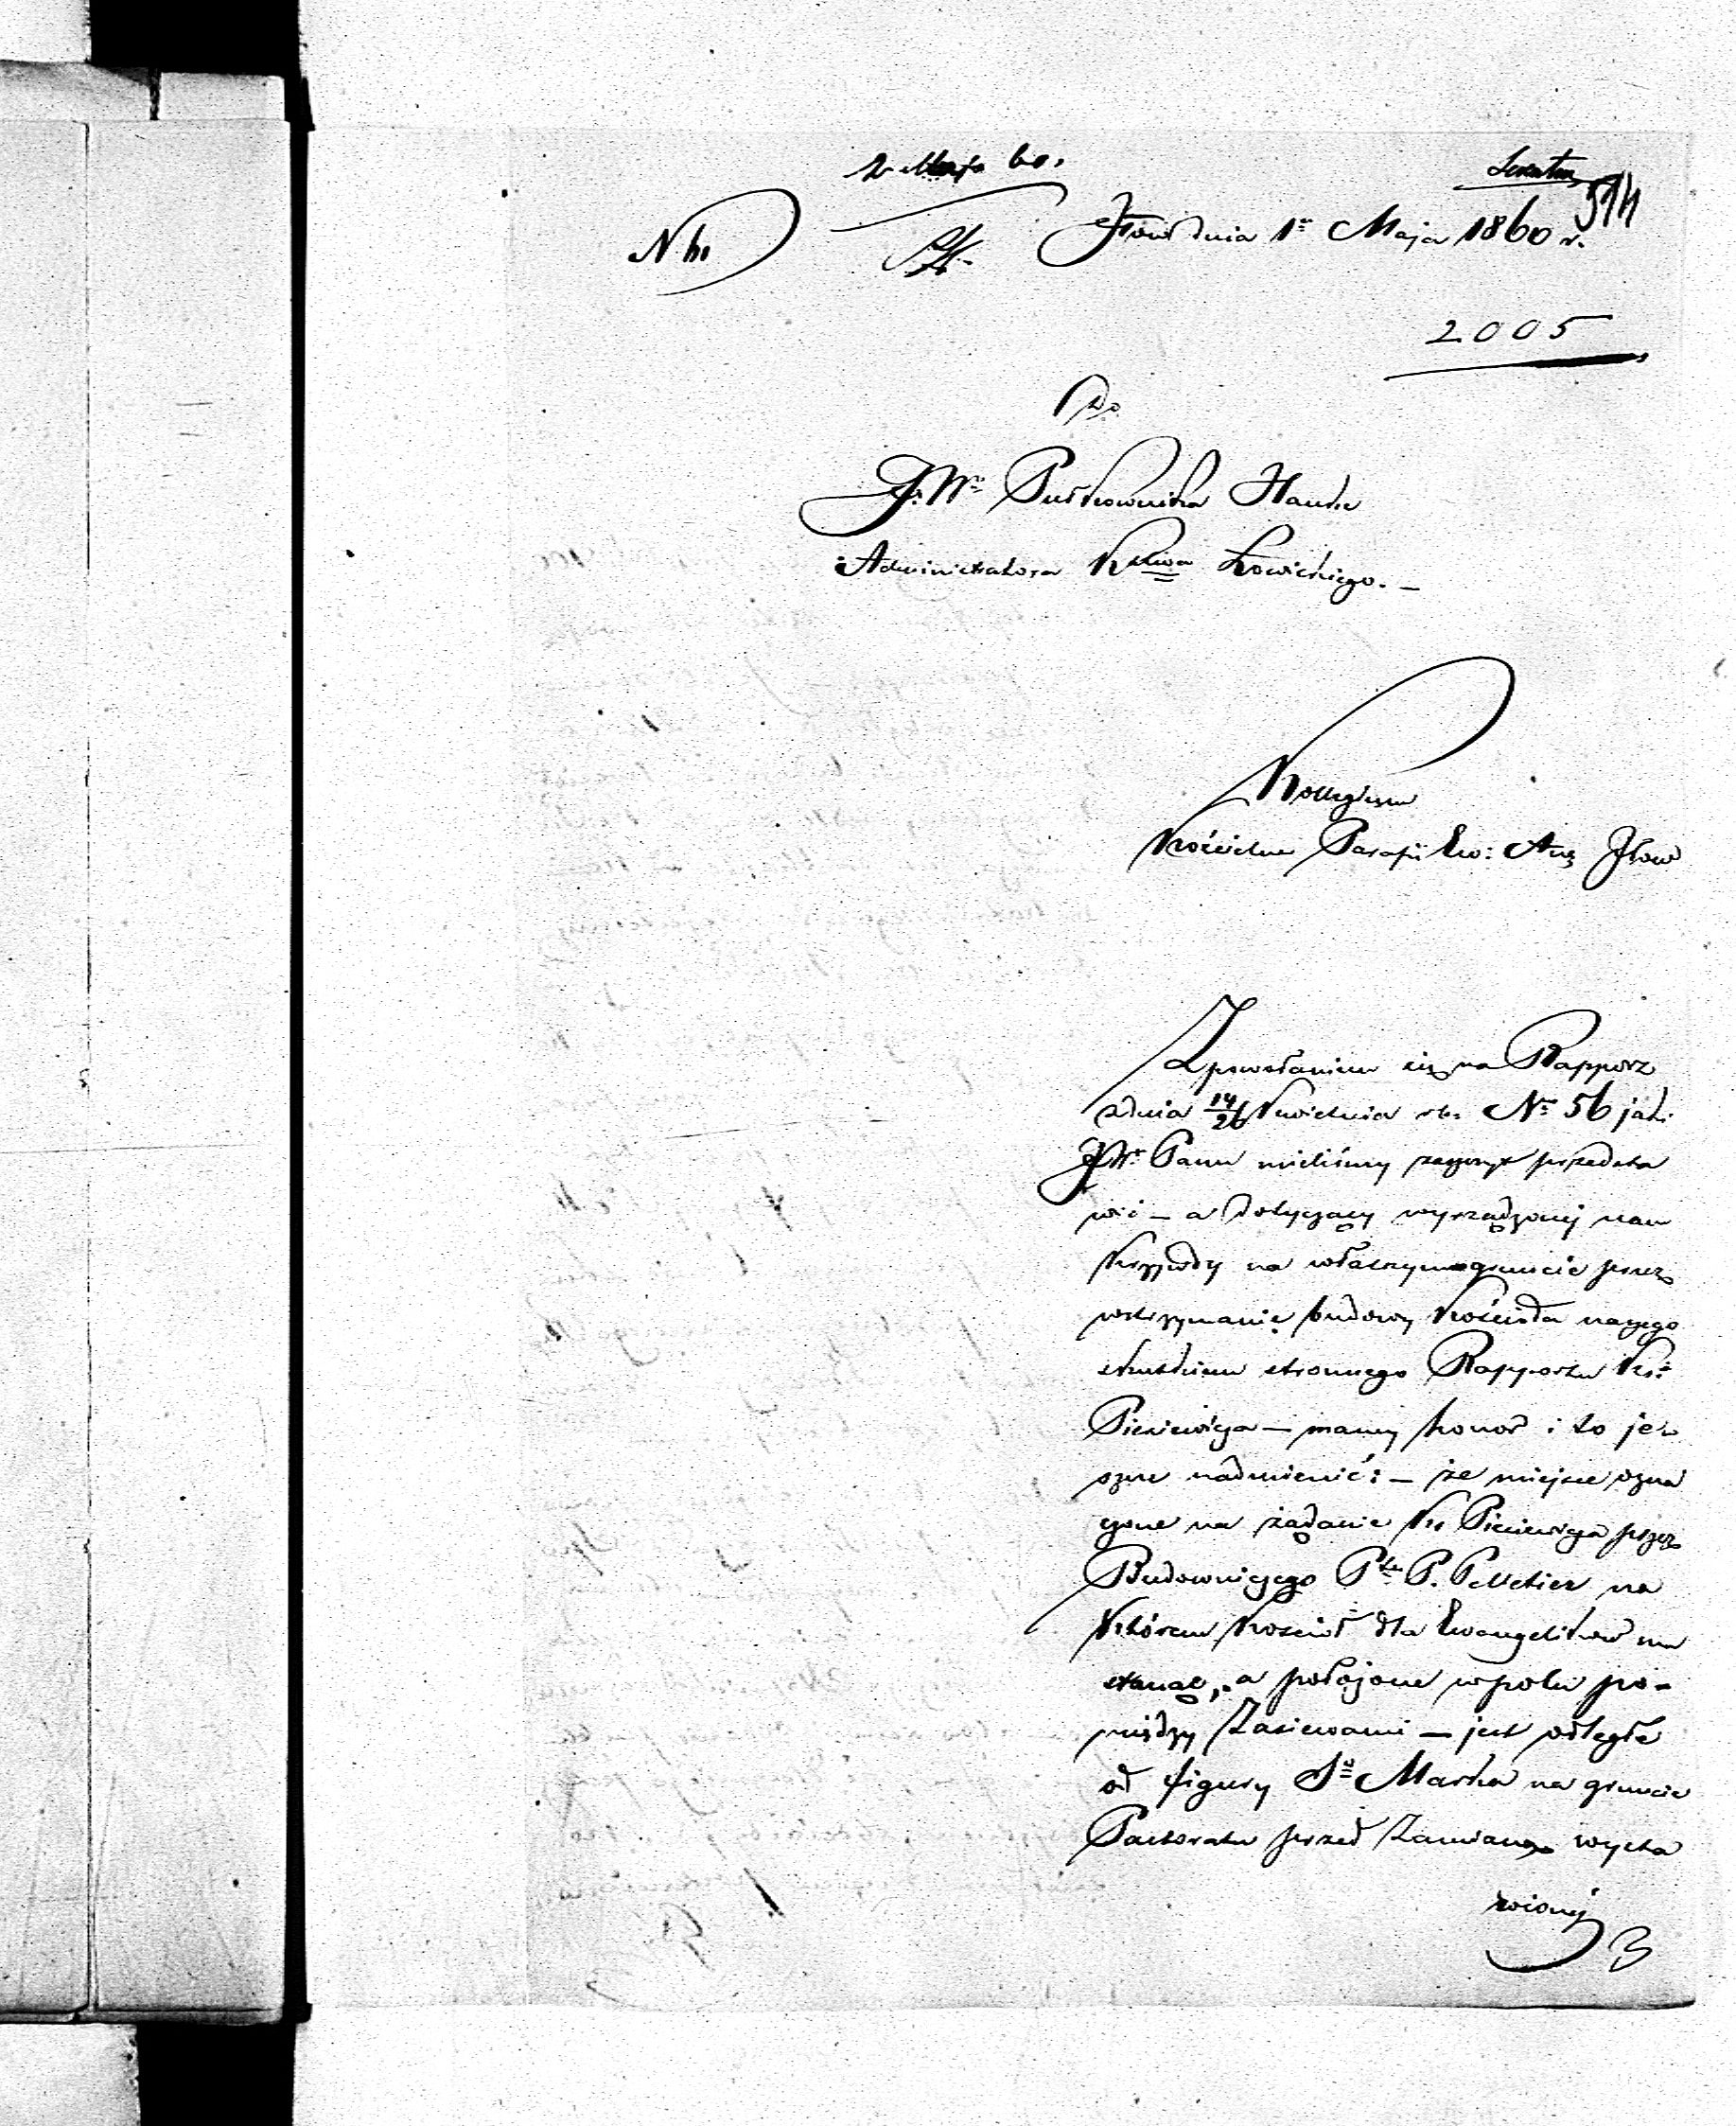 2 Maja 60.
514
Iłów dnia 1º Maja 1860 r.
2005
Do
J.W. Pułkownika Hauke
Administratora Kstwa Łowickiego. —
Kollegium
Kościelne Parafii Ew: Aug Iłow
Z powołaniem się na Rapport
z dnia 14/26 Kwietnia rb. Nr 56 jaki
JW. Panu mieliśmy zaszczyt przedsta
wić — a dotyczący wyrządzonej nam
krzywdy na własnym gruncie przez
wstrzymanię budowy Kościoła naszego
skutkiem stronnego Rapportu Ks:
Pieniewicza — mamy honor i to je-
szcze nadmienić: — że miejsce ozna
czone na żądanie Ks Pieniewicza przez
Budowniczego Ptu P. Pelletier na
którem kosciół dla Ewangelików ma
stanąć, a położone w polu po-
między Zasiewami — jest odległe
od figury Sº Marka na gruncie
Pastoratu przed Zamianą wysta
wionej